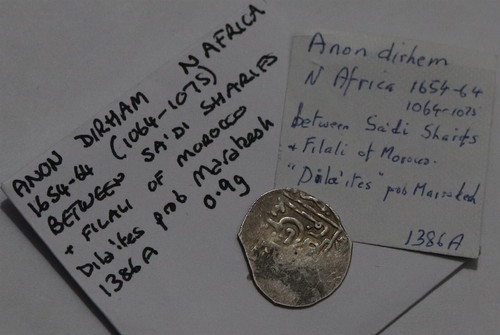 N AFRICA
ANON DIRHAM (1064-1075)
1654-64
BETWEEN SA'DI SHARIFS
+ FILALI OF MOROCCO
Dila'ites prob Marakesh
1386A 0.9g
Anon dirhem
N Africa 1654-64
1064-1075
between Sa'di Sharifs
+ Filali of Morocco.
"Dila'ites" prob Marrakech
1386A